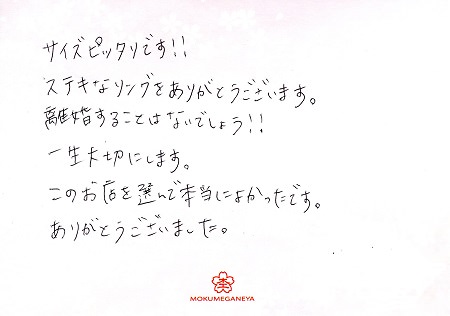 サイズピッタリです!!
ステキなリングをありがとうございます。
離婚することはないでしょう!!
一生大切にします。
このお店を選んで本当によかったです。
ありがとうございました。
杢
MOKUMEGANEYA